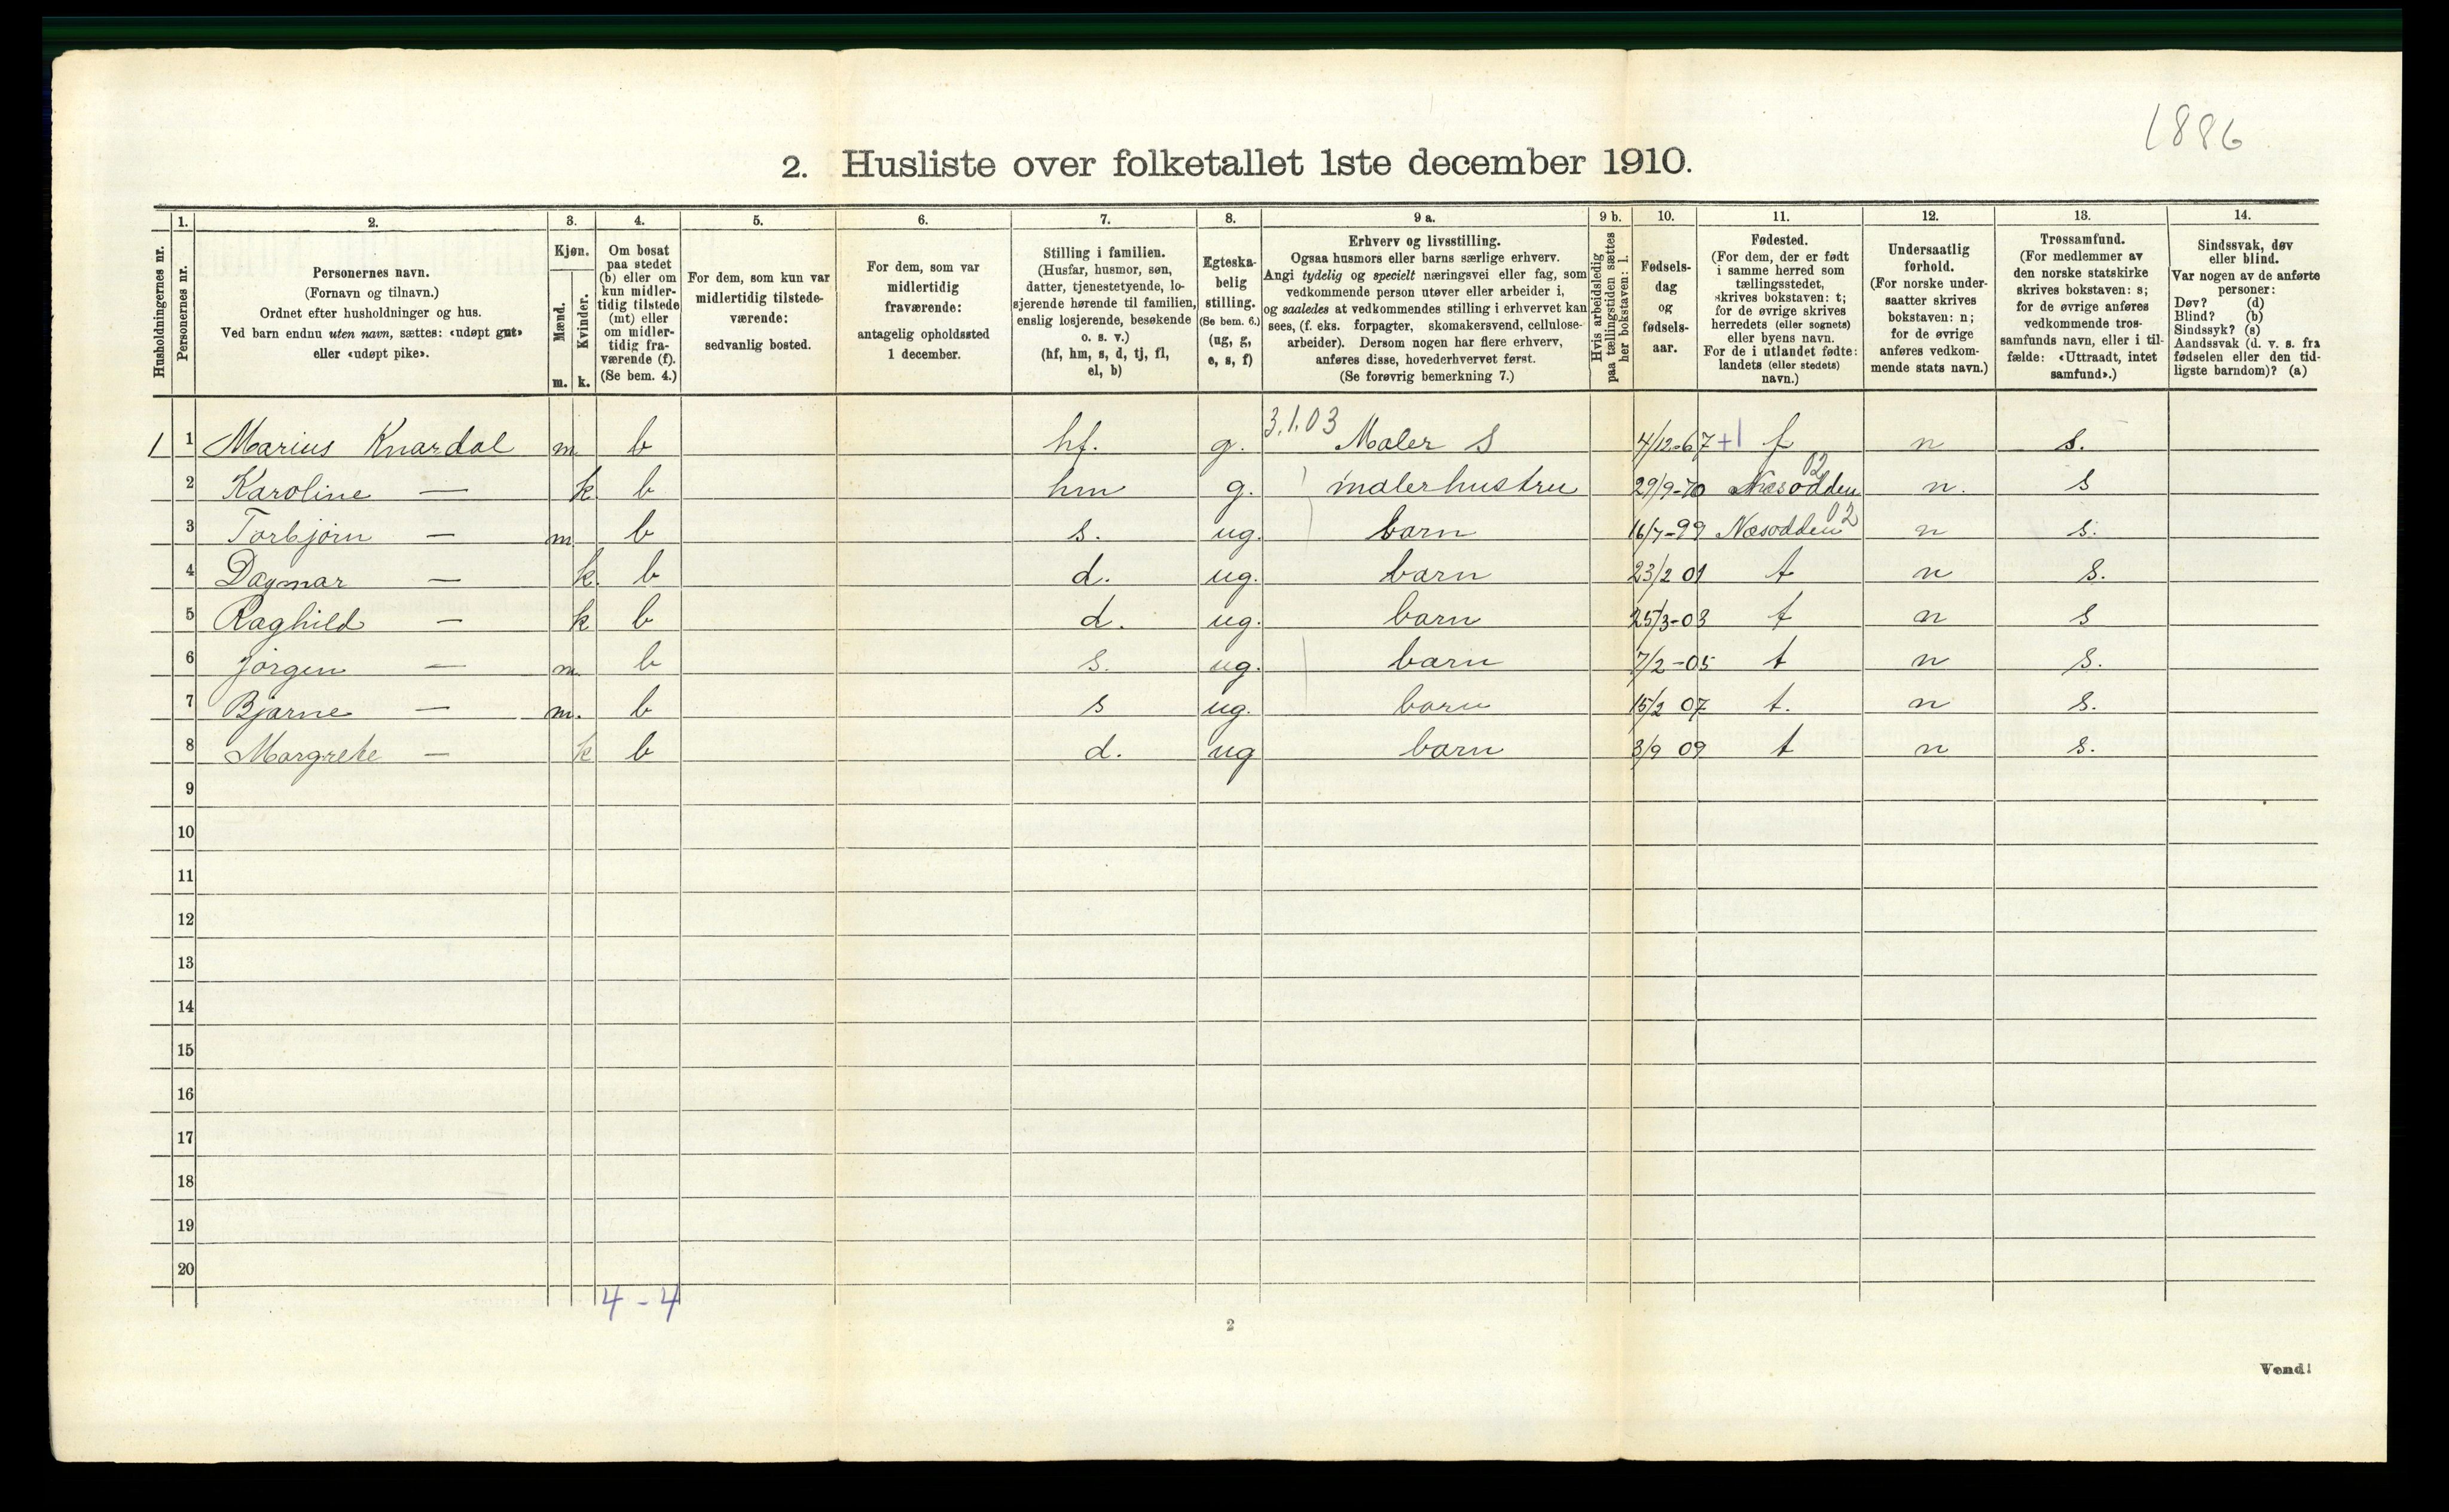 1886
2. Husliste over folketallet 1ste december 1910.
Husholdningernes nr.
1.
Personernes nr.
2.
Personernes navn.
(Fornavn og tilnavn.)
Ordnet efter husholdninger og hus.
Ved barn endnu uten navn, sættes: «udøpt gut»
eller «udøpt pike».
3.
Kjøn.
Mænd.
Kvinder.
m. k.
4.
Om bosat
paa stedet
(b) eller om
kun midler-
tidig tilstede
(mt) eller
om midler-
tidig fra-
værende (f).
(Se bem. 4.)
5.
For dem, som kun var
midlertidig tilstede-
værende:
sedvanlig bosted.
6.
For dem, som var
midlertidig
fraværende:
antagelig opholdssted
1 december.
7.
Stilling i familien.
(Husfar, husmor, søn,
datter, tjenestetyende, lo-
sjerende hørende til familien,
enslig losjerende, besøkende
o. s. v.)
(hf, hm, s, d, tj, fl,
el, b)
8.
Egteska-
belig
stilling.
(Se bem. 6.)
(ug, g,
e, s, f)
9 a.
Erhverv og livsstilling.
Ogsaa husmors eller barns særlige erhverv.
Angi tydelig og specielt næringsvei eller fag, som
vedkommende person utøver eller arbeider i,
og saaledes at vedkommendes stilling i erhvervet kan
sees, (f. eks. forpagter, skomakersvend, cellulose-
arbeider). Dersom nogen har flere erhverv,
anføres disse, hovederhvervet først.
(Se forøvrig bemerkning 7.)
9 b.
Hvis arbeidsledig
paa tællingstiden sættes
her bokstaven: l.
10.
Fødsels-
dag
og
fødsels-
aar.
11.
Fødested.
(For dem, der er født
i samme herred som
tællingsstedet,
skrives bokstaven: t;
for de øvrige skrives
herredets (eller sognets)
eller byens navn.
For de i utlandet fødte:
landets (eller stedets)
navn.)
12.
Undersaatlig
forhold.
(For norske under-
saatter skrives
bokstaven: n;
for de øvrige
anføres vedkom-
mende stats navn.)
13.
Trossamfund.
(For medlemmer av
den norske statskirke
skrives bokstaven: s;
for de øvrige anføres
vedkommende tros-
samfunds navn, eller i til-
fælde: «Uttraadt, intet
samfund».)
14.
Sindssvak, døv
eller blind.
Var nogen av de anførte
personer:
Døv? (d)
Blind? (b)
Sindssyk? (s)
Aandssvak (d. v. s. fra
fødselen eller den tid-
ligste barndom)? (a)
3.1.03
1 1 Marius Knardal m b hf. g. Maler S 4/12-67 +1 f n s.
02
2 Karoline — k b hm g. malerhustru 29/9-70 Næsodden n. s
02
3 Torbjørn — m b s. ug. barn 16/7-99 Næsodden n s.
4 Dagmar — k. b d. ug. barn 23/2 01 t n s.
5 Raghild — k b d. ug. barn 25/3-03 t n s
6 Jørgen — m b s. ug. barn 7/2-05 t n s.
7 Bjarne — m. b s ug. barn 15/2 07 t. n s.
8 Margrete — k b d. ug barn 3/9 09 t n s.
9
10
11
12
13
14
15
16
17
18
19
20
4 - 4
2
Vend!